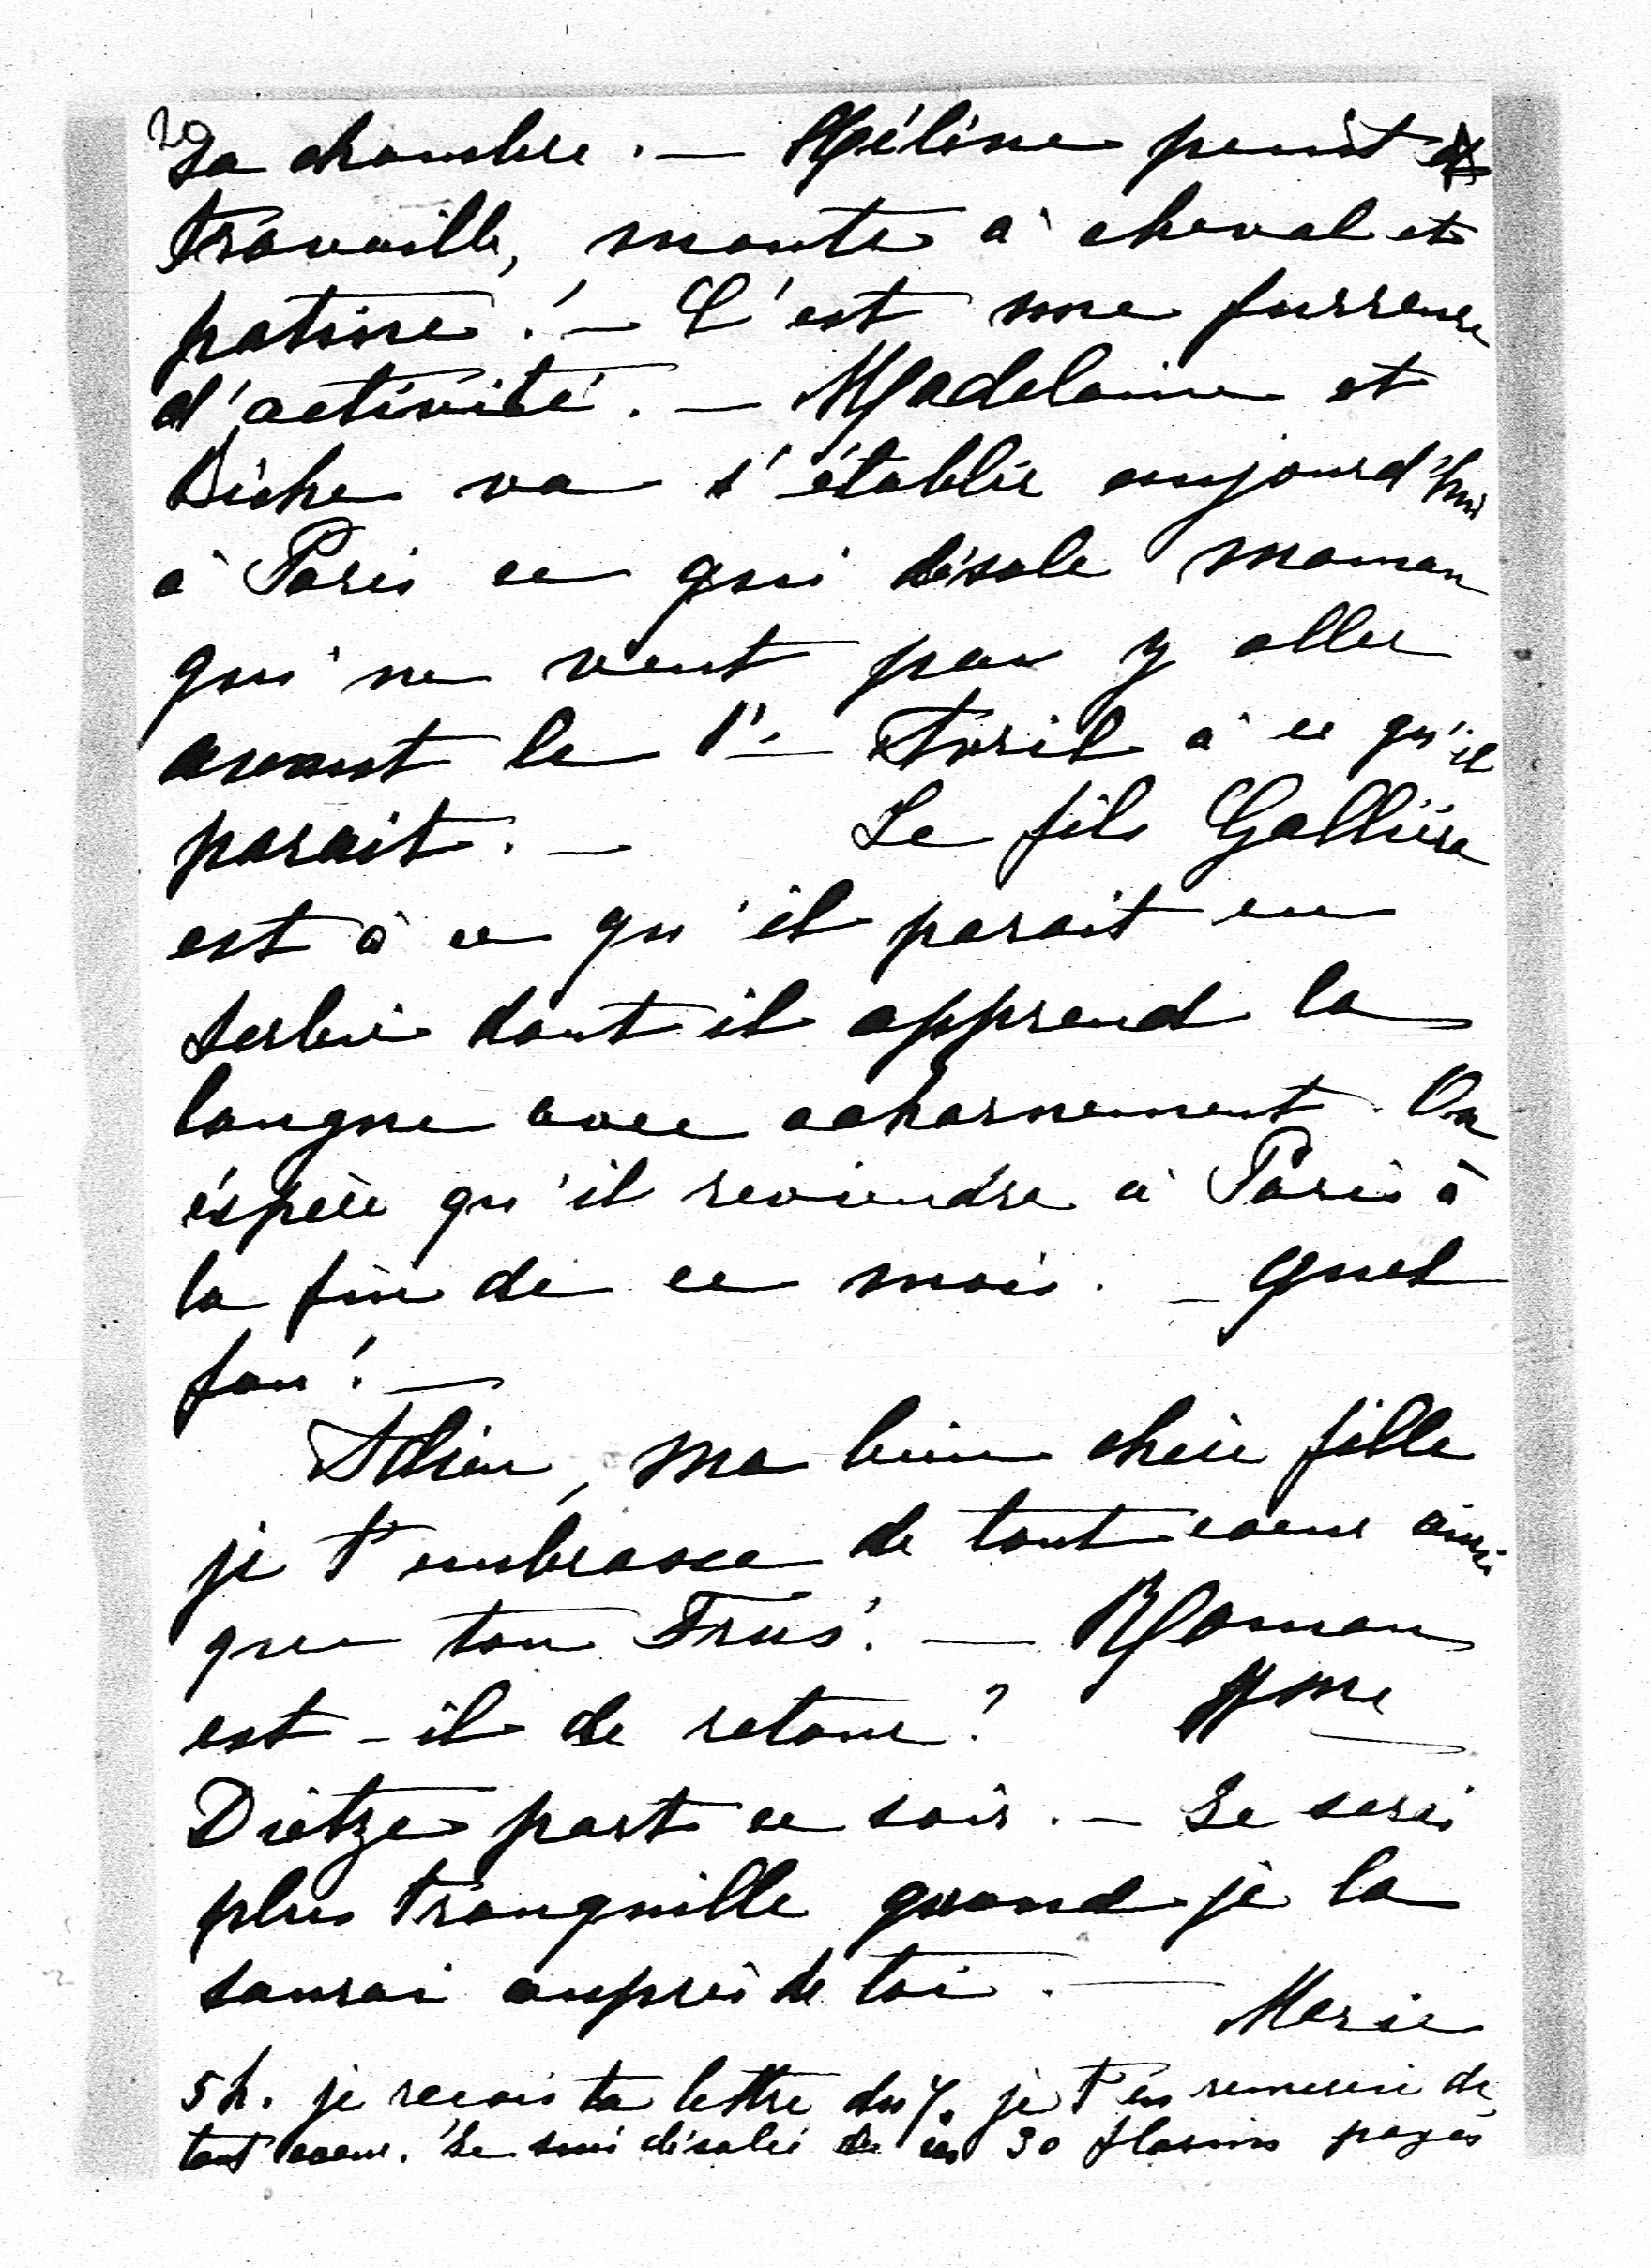 20
Sa chambre. — Hélène peint
travaille, monte à cheval et
patine! — C'est une fureure
d'activité. — Madelaine et
Biche va s'établir aujourd'hui
à Paris ce qui désole maman
qui ne veut pas y aller
avant le 1er Avril à ce qu'il
parait. — Le fils Galliera
est à ce qu'il parait en
Serbie dont il apprend la
langue avec acharnement. On
éspère qu'il reviendra à Paris à
la fin de ce mois. — Quel
fou! —
Adieu, ma bien chère fille
je t'embrasse de tout coeur ainsi
que ton Frus. — Maman
est-il de retour? Mme
Dietze part ce soir. — Je serai
plus tranquille quand je la
saurai auprès de toi. — Marie
5 h. je reçois ta lettre du 7. je t'en remercie de
tout coeur. Je suis désolée de ces 30 florins payés